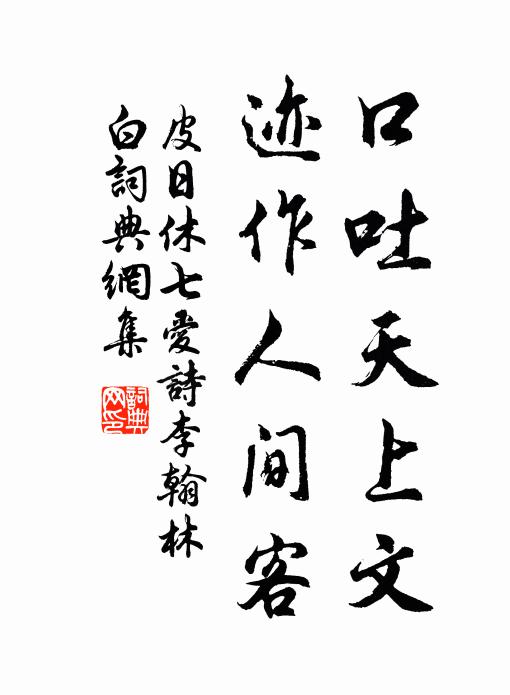 口吐天上文
迹作人间客
皮日休七愛詩李翰林
白詞典網集
詞典
网印